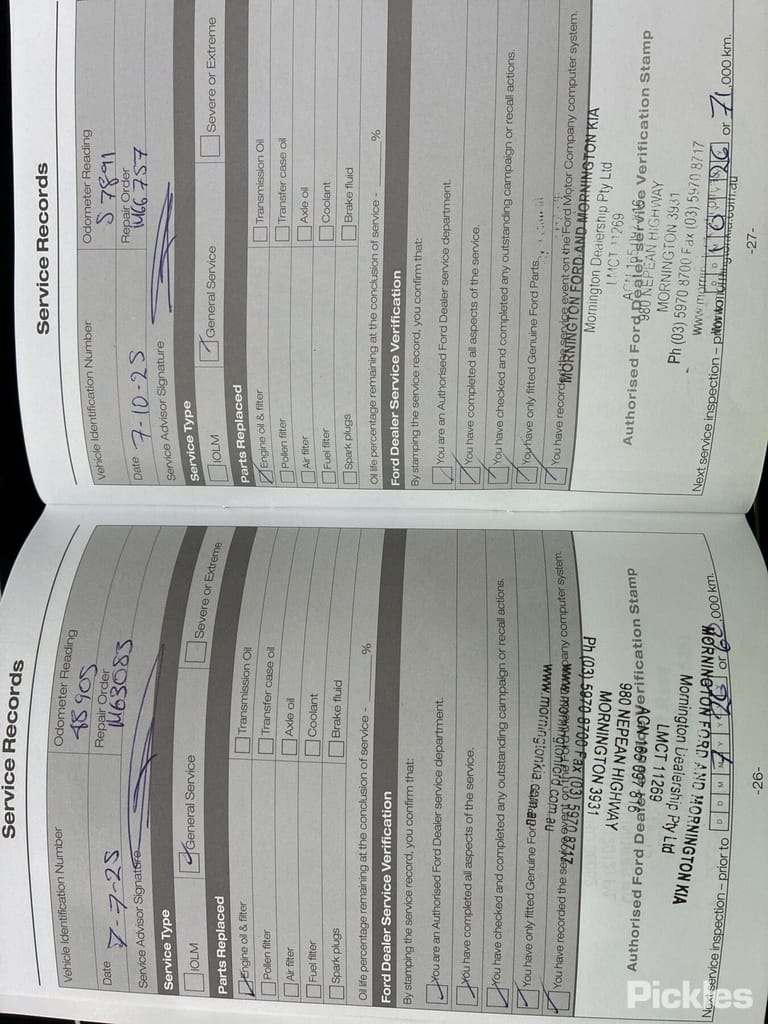 Service Records
Vehicle Identification Number
Odometer Reading
48905
Date 7-7-25
Repair Order
M63083
Service Advisor Signature
Service Type
IOLM
General Service
Severe or Extreme
Parts Replaced
Engine oil & filter
Transmission Oil
Pollen filter
Transfer case oil
Air filter
Axle oil
Fuel filter
Coolant
Spark plugs
Brake fluid
Oil life percentage remaining at the conclusion of service - %
Ford Dealer Service Verification
By stamping the service record, you confirm that:
You are an Authorised Ford Dealer service department.
You have completed all aspects of the service.
You have checked and completed any outstanding campaign or recall actions.
You have only fitted Genuine Ford
www.morningtonkia.com.au
You have recorded the service event on the Ford Motor Company computer system.
www.morningtonford.com.au
Ph (03) 5970 8700 Fax (03) 5970 8717
MORNINGTON 3931
980 NEPEAN HIGHWAY
Authorised Ford Dealer Service Verification Stamp
LMCT 11269
Mornington Dealership Pty Ltd
MORNINGTON FORD AND MORNINGTON KIA
Next service inspection – prior to or ,000 km.
-26-
Service Records
Vehicle Identification Number
Odometer Reading
57891
Date 7-10-25
Repair Order
M66757
Service Advisor Signature
Service Type
IOLM
General Service
Severe or Extreme
Parts Replaced
Engine oil & filter
Transmission Oil
Pollen filter
Transfer case oil
Air filter
Axle oil
Fuel filter
Coolant
Spark plugs
Brake fluid
Oil life percentage remaining at the conclusion of service - %
Ford Dealer Service Verification
By stamping the service record, you confirm that:
You are an Authorised Ford Dealer service department.
You have completed all aspects of the service.
You have checked and completed any outstanding campaign or recall actions.
You have only fitted Genuine Ford Parts.
You have recorded the service event on the Ford Motor Company computer system.
MORNINGTON FORD AND MORNINGTON KIA
Mornington Dealership Pty Ltd
LMCT 11269
Authorised Ford Dealer Service Verification Stamp
980 NEPEAN HIGHWAY
MORNINGTON 3931
Ph (03) 5970 8700 Fax (03) 5970 8717
Next service inspection – prior to or 71,000 km.
-27-
Pickles